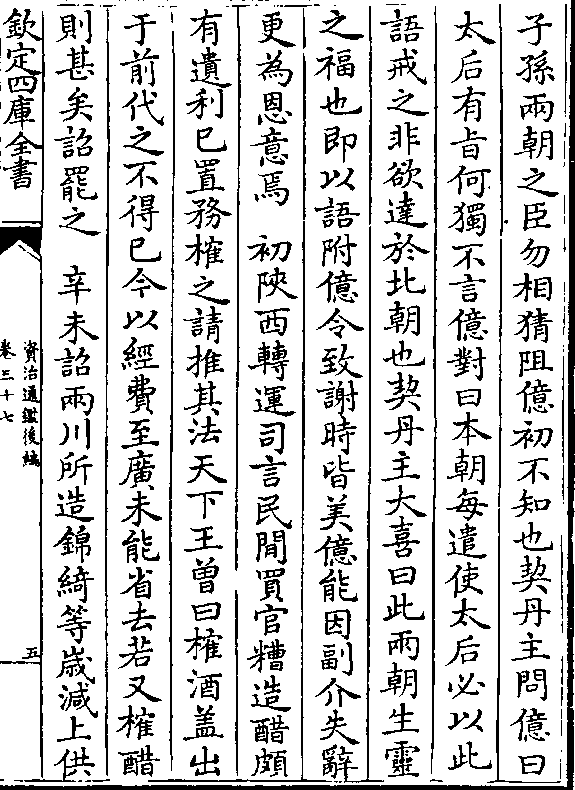 子孫兩朝之臣勿相猜阻億初不知也契丹主問億曰
太后有旨何獨不言億對曰本朝每遣使太后必以此
語戒之非欲達於北朝也契丹主大喜曰此兩朝生靈
之福也即以語附億令致謝時皆美億能因副介失辭
更為恩意焉　初陜西轉運司言民間買官糟造醋頗
有遺利已置務榷之請推其法天下王曾曰榷酒盖出
于前代之不得已今以經費至廣未能省去若又榷醋
則甚矣詔罷之　辛未詔兩川所造錦綺等歲減上供
欽定四庫全書
資治通鑑後編
卷三十七
五